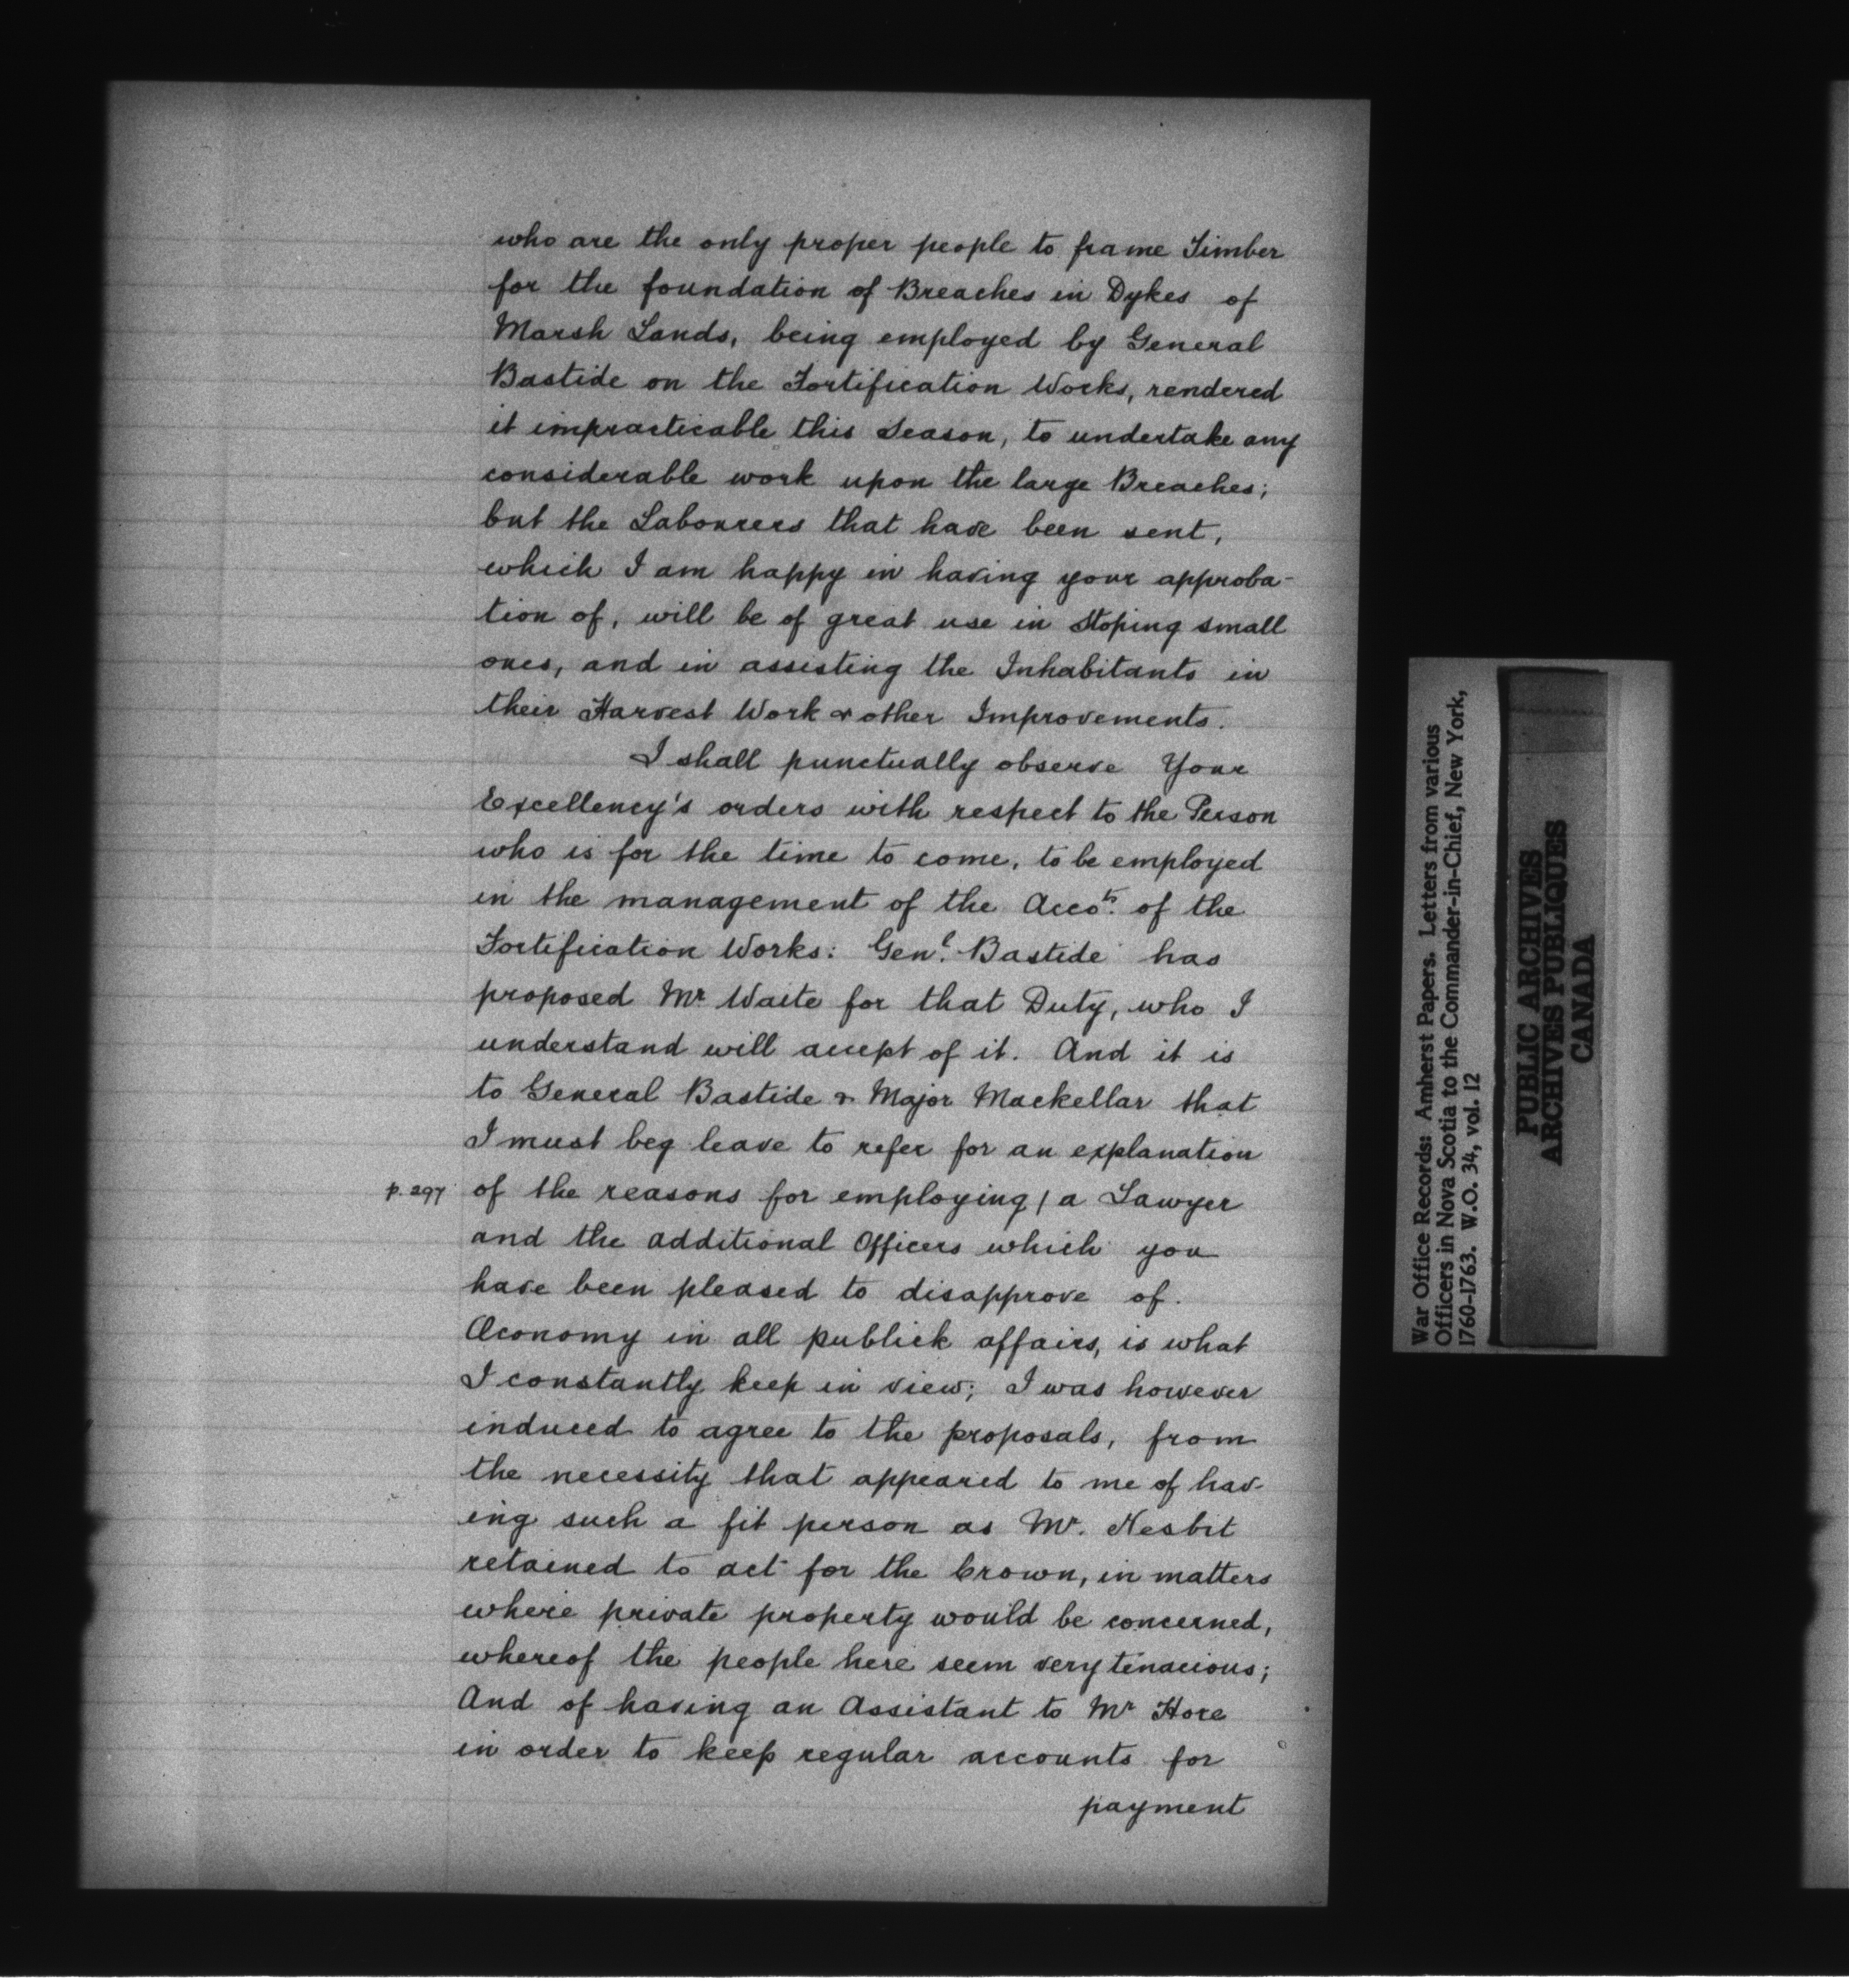 who are the only proper people to frame Timber
for the foundation of Breaches in Dykes of
Marsh Lands, being employed by General
Bastide on the Fortification Works, rendered
it impracticable this Season, to undertake any
considerable work upon the large Breaches;
but the Labourers that have been sent,
which I am happy in having your approba-
tion of, will be of great use in Stoping small
ones, and in assisting the Inhabitants in
their Harvest Work & other Improvements.
I shall punctually observe Your
Excellency's orders with respect to the Person
who is for the time to come, to be employed
in the management of the Accots. of the
Fortification Works: Genl. Bastide has
proposed Mr Waite for that Duty, who I
understand will accept of it. And it is
to General Bastide & Major Mackellar that
I must beg leave to refer for an explanation
p. 297 of the reasons for employing / a Lawyer
and the additional Officers which you
have been pleased to disapprove of.
Œconomy in all publick affairs, is what
I constantly keep in view; I was however
induced to agree to the proposals, from
the necessity that appeared to me of hav-
ing such a fit person as Mr. Nesbit
retained to act for the Crown, in matters
where private property would be concerned,
whereof the people here seem very tenacious;
And of having an Assistant to Mr Hore
in order to keep regular accounts for
payment
War Office Records: Amherst Papers. Letters from various
Officers in Nova Scotia to the Commander-in-Chief, New York,
1760-1763. W.O. 34, vol. 12
PUBLIC ARCHIVES
ARCHIVES PUBLIQUES
CANADA